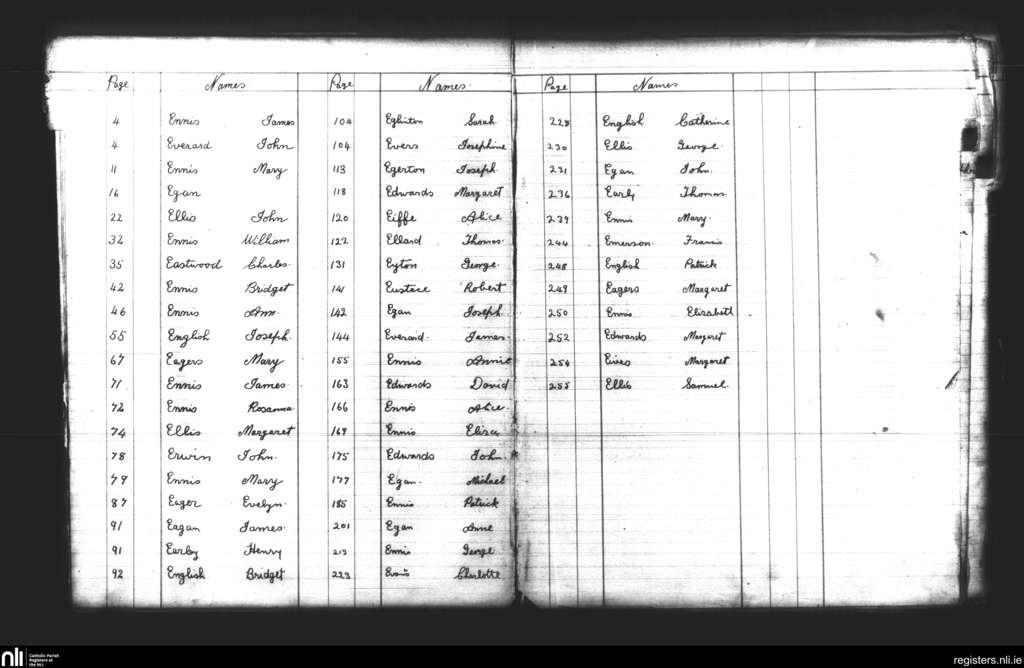 Page Names Page Names Page Names
4 Ennis James 104 Eglinton Sarah 228 English Catherine
4 Everard John 104 Evers Josephine 230 Ellis George
11 Ennis Mary 113 Egerton Joseph 231 Egan John
16 Egan 118 Edwards Margaret 236 Early Thomas
22 Ellis John 120 Eiffe Alice 239 Ennis Mary
32 Ennis William 122 Ellard Thomas 244 Emerson Francis
35 Eastwood Charles 131 Eyton George 248 English Patrick
42 Ennis Bridget 141 Eustace Robert 249 Eagers Margaret
46 Ennis Ann 142 Egan Joseph 250 Ennis Elizabeth
55 English Joseph 144 Everard James 252 Edwards Margaret
67 Eagers Mary 155 Ennis Annie 254 Margaret
71 Ennis James 163 Edwards David 255 Ellis Samuel
72 Ennis Rosanna 166 Ennis Alice
74 Ellis Margaret 169 Ennis Eliza
78 Erwin John 175 Edwards John
79 Ennis Mary 177 Egan Michael
87 Eager Evelyn 185 Ennis Patrick
91 Eagan James 201 Egan Anne
91 Earby Henry 213 Ennis George
92 English Bridget 223 Charlotte
nli Catholic Parish Registers at the NLI
registers.nli.ie